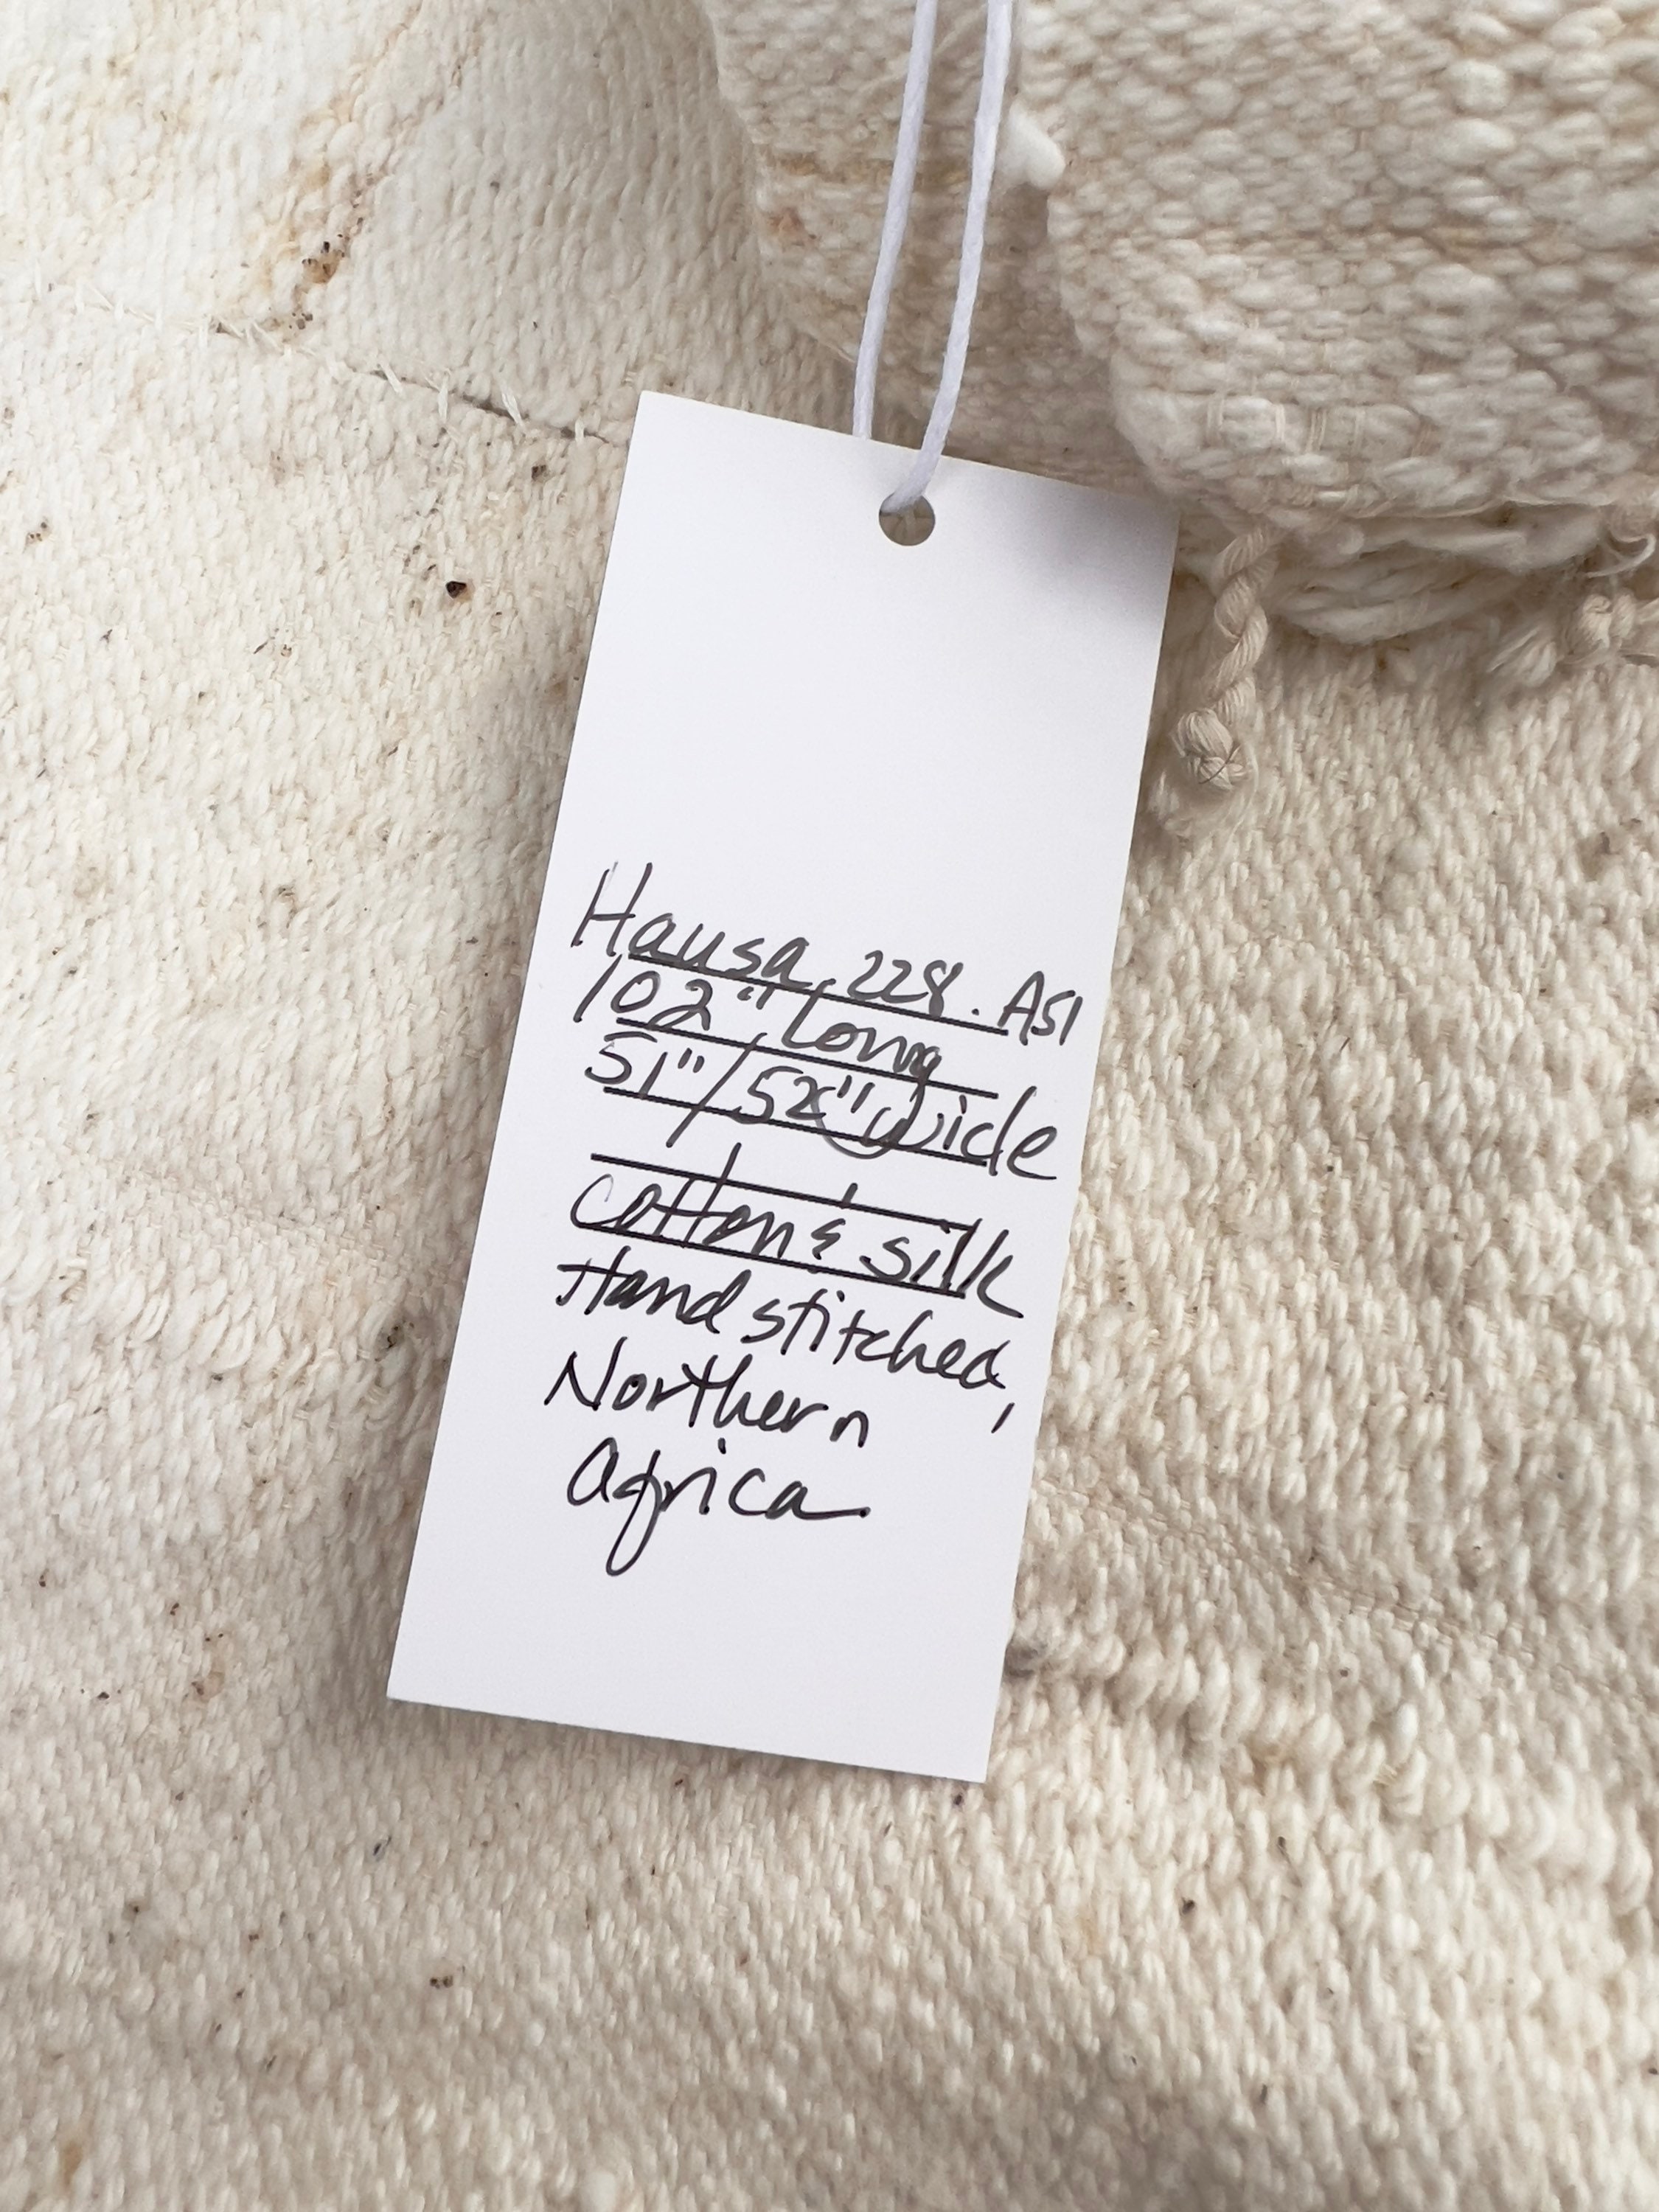 Hausa 228. A51
102" long
51"/52" wide
cotton & silk
Hand stitched,
Northern
Africa